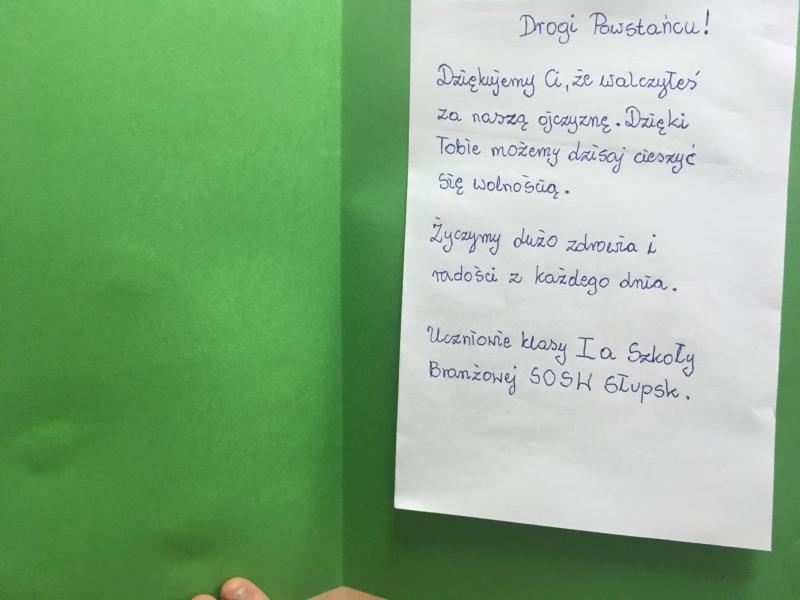 Drogi Powstańcu!
Dziękujemy Ci, że walczyłeś
za naszą ojczyznę. Dzięki
Tobie możemy dzisaj cieszyć
się wolnością.
Życzymy dużo zdrowia i
radości z każdego dnia.
Uczniowie klasy I a Szkoły
Branżowej SOSW Słupsk.